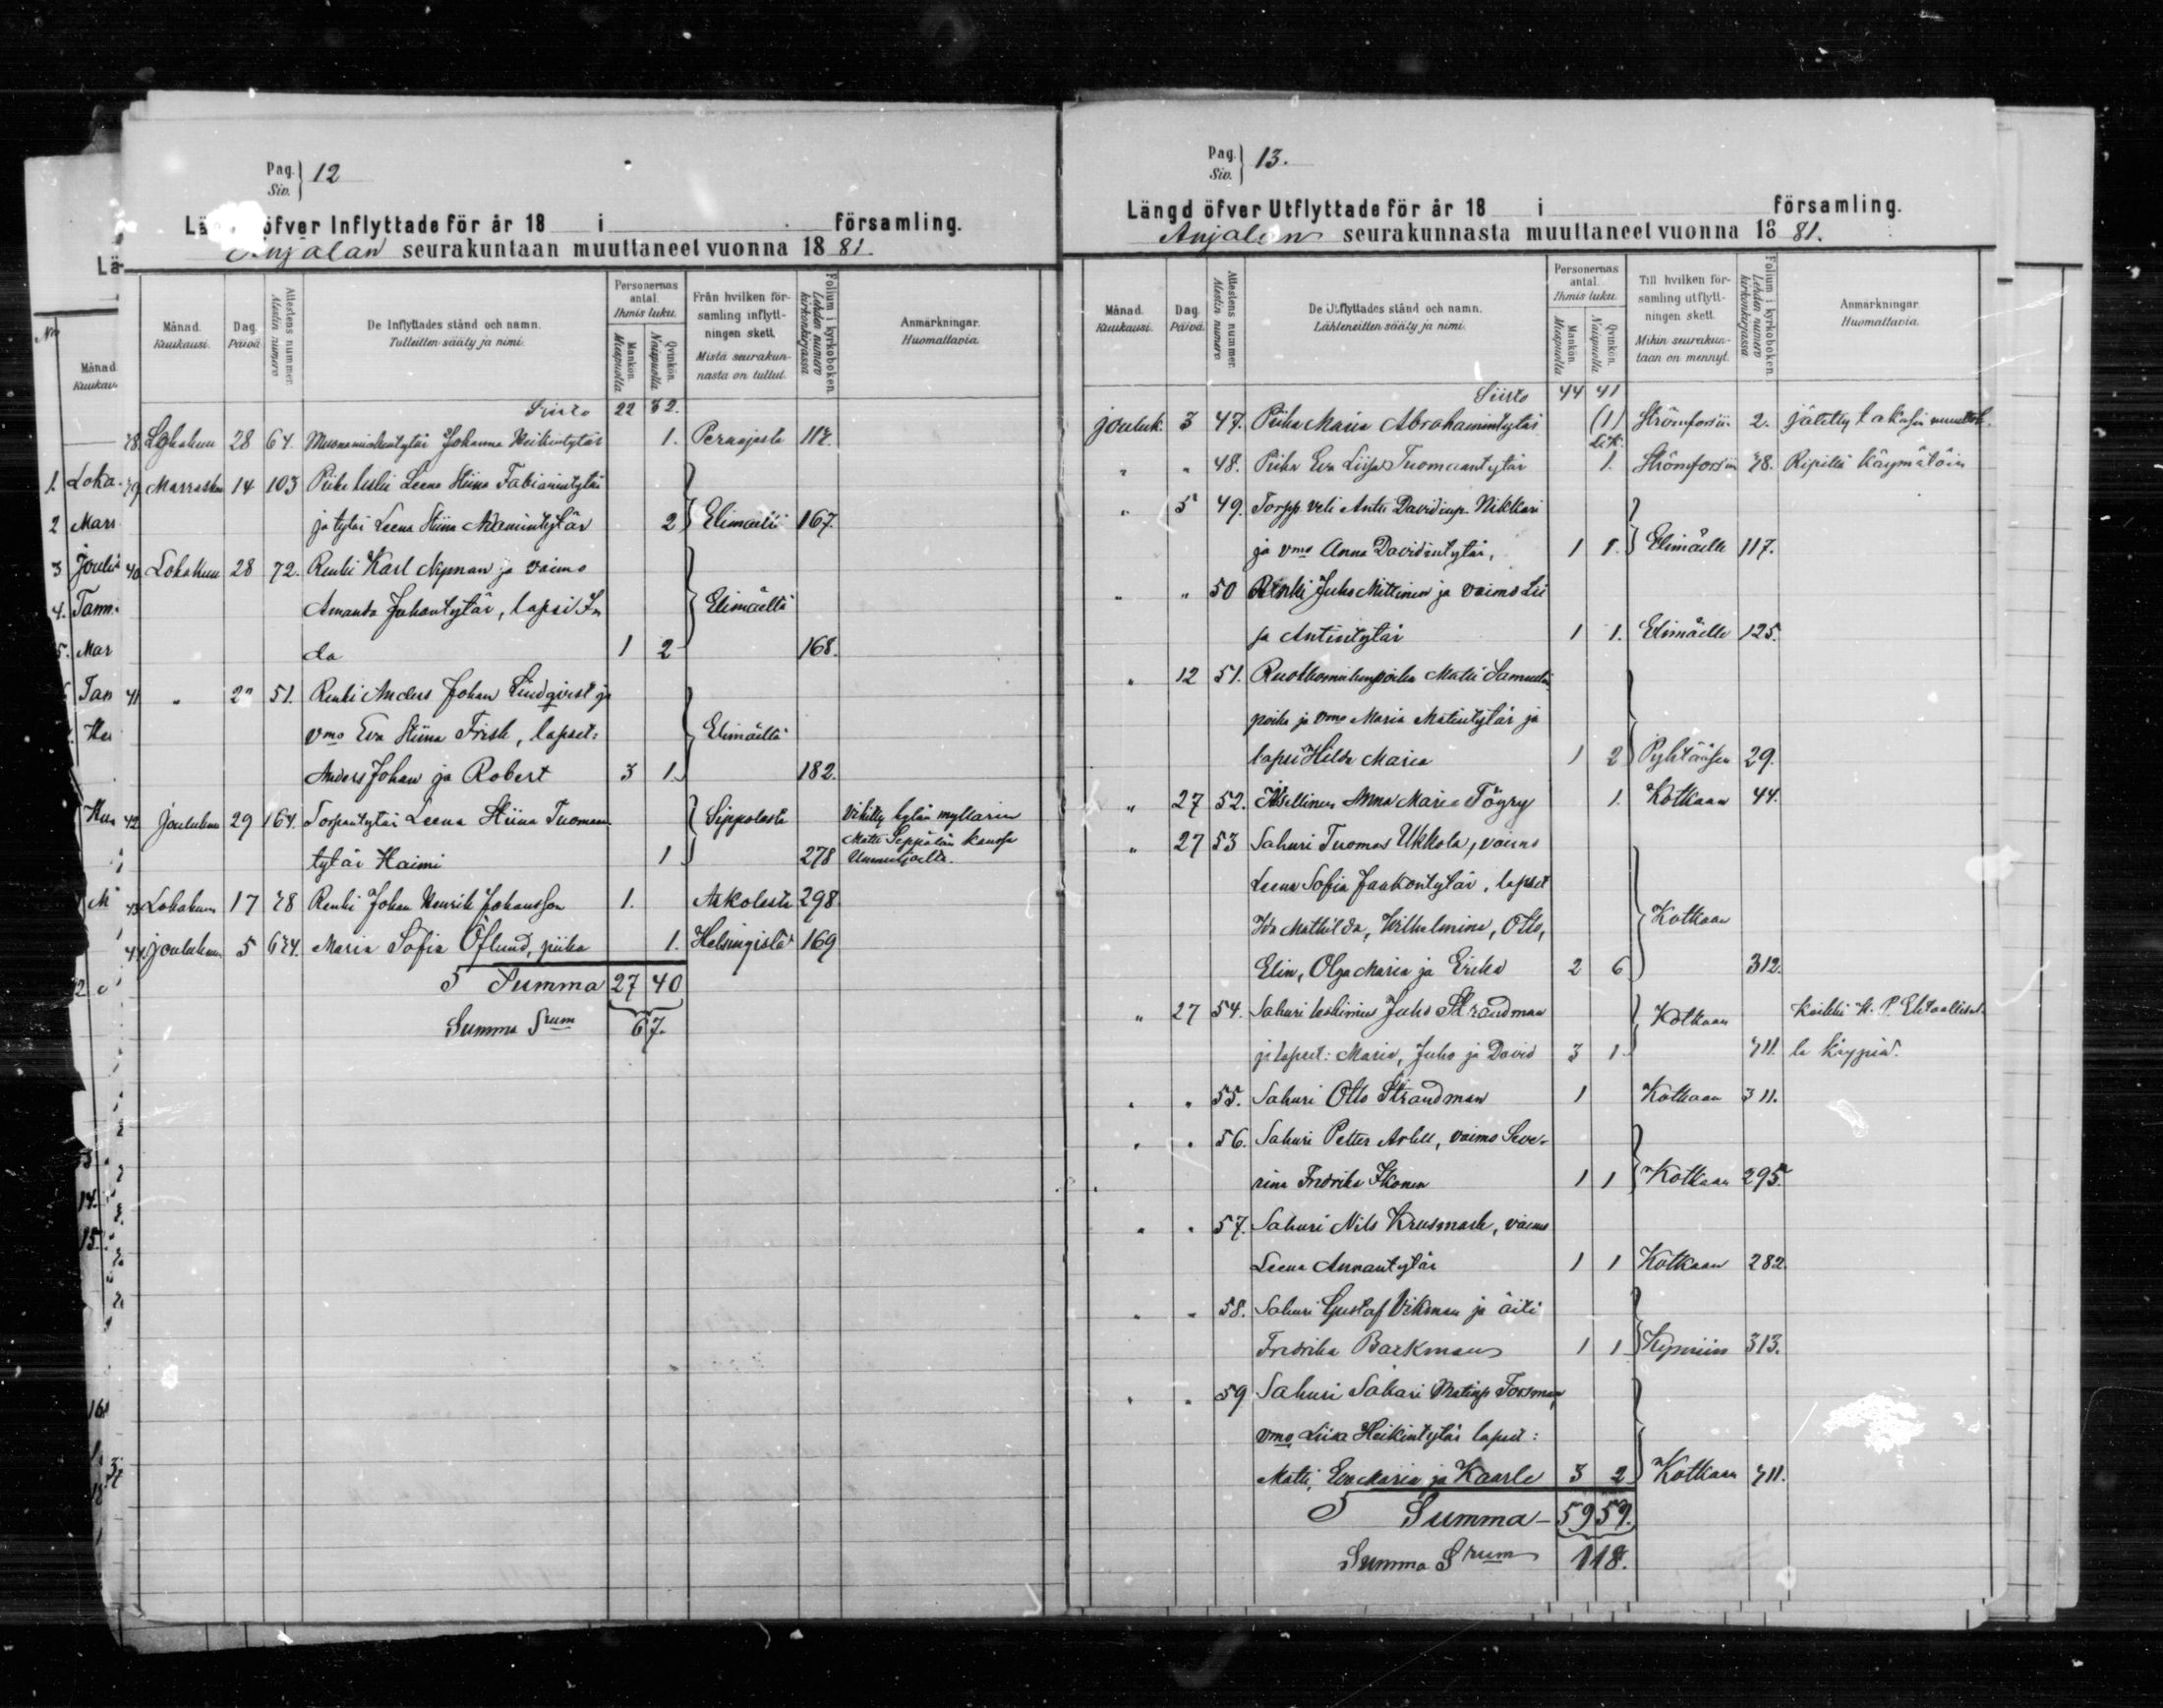 Pag. Siv. 12
öfver Inflyttade för år 18 i församling.
Anjalan seurakuntaan muuttaneet vuonna 1881.
Månad. Kuukausi. Dag. Päivä. Attestens nummer. Alestin numero De Inflyttades stånd och namn. Tulleitten sääty ja nimi. Personernas antal. Ihmis luku. Mankön. Miespuolia Qvinkön. Naispuolia Från hvilken församling inflyttningen skett. Mistä seurakunnasta on tullut. Folium i kyrkoboken. Lehden numero kirkonkirjassa Anmärkningar. Huomattavia.
Siirto 22 32.
38 Lokakuu 28 64. Johanna Heikintytär 1. Pernajasta 117.
39 Marrasku 14 103 Piika leski Leena Stiina Fabianintytär
ja tytär Leena Stiina Adamintytär 2 Elimäeltä 167.
40 Lokakuu 28 72. Renki Karl Nyman ja vaimo
Amanda Juhantytär, lapsi I- Elimäeltä
da 1 2 168.
41 " 2" 51. Renki Anders Johan Lindqvist ja
vmo Eva Stiina Frisk, lapset: Elimäeltä
Anders Johan ja Robert 3 1. 182.
42 Jouluku 29 164. Torpantytär Leena Stiina Tuoman- Sippolasta Vihitty kylän myllärin
tytär Haimi 1 278 Matti Seppälän kanssa Ummeljoelta.
43 Lokakuu 17 78 Renki Johan Henrik Johansson 1. Askolasta 298
44 Jouluku 5 674. Maria Sofia Öflund, piika 1. Helsingistä 169
S Summa 27 40
Summa Srum 67.
Pag. Siv. 13.
Längd öfver Utflyttade för år 18 i församling.
Anjalan seurakunnasta muuttaneet vuonna 1881.
Månad. Kuukausi. Dag. Päivä. Attestens nummer. Alestin numero De Utflyttades stånd och namn. Lähteneitten sääty ja nimi. Personernas antal. Ihmis luku. Mankön. Miespuolia Qvinkön. Naispuolia Till hvilken församling utflyttningen skett. Mihin seurakuntaan on mennyt. Folium i kyrkoboken. Lehden numero kirkonkirjassa Anmärkningar. Huomattavia.
Siirto 44 41
Jouluk. 3 47. Piika Maria Abrahamintytär (1) Strömforsiin 2. jätetty takasin
" " 48. Piika Eva Liisa Tuomaantytär 1. Strömforsiin 78. Ripillä käymätöin
" 5 49. Torpp. veli Antti Davidinp. Nikkari
ja vmo Anna Davidintytär, 1 1. Elimäelle 117.
" " 50 Renki Juho Mittinen ja vaimo Lii
sa Antintytär 1 1. Elimäelle 125.
" 12 51. Ruotumiehenpoika Matti Samuelin
poika ja vmo Maria Matintytär ja
lapsi Hilda Maria 1 2 Pyhtääsen 29.
" 27 52. Itsellinen Anna Maria Töyry 1. Kotkaan 44.
" 27 53 Sahuri Tuomas Ukkola, vaimo
Leena Sofia Jaakontytär, lapset
Ida Mathilda, Wilhelmina, Otto, Kotkaan
Elin, Olga Maria ja Erika 2 6 312.
" 27 54. Sahuri leskimies Juho Strandman Kotkaan Kaikki H. P. Ehtoollisel-
ja lapset: Maria, Juho ja David 3 1. 311. la käypiä.
" " 55. Sahuri Otto Strandman 1 Kotkaan 311.
" " 56. Sahuri Petter Arlell, vaimo Seve-
rina Fredrika Ikonen 1 1 Kotkaan 295.
" " 57. Sahuri Nils Krusmark, vaimo
Leena Annantytär 1 1 Kotkaan 282.
" " 58. Sahuri Gustaf Vikman ja äiti
Fredrika Backman 1 1 Kymiin 313.
" " 59 Sahuri Sakari Matinp. Forsman,
vmo Liisa Heikintytär lapset:
Matti, Eva Maria ja Kaarle 3 2 Kotkaan 311.
S Summa - 59 59.
Summa Srum 118.